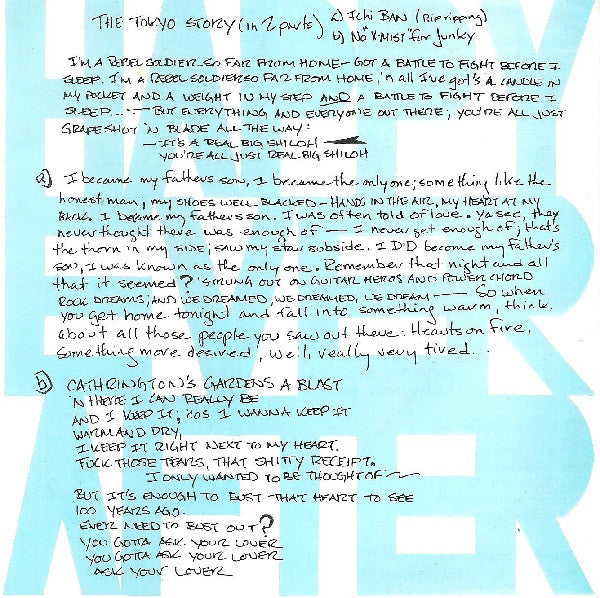 THE TOKYO STORY (in 2 parts) a) Ichi BAN (Rip ripping)
b) No "X-MIST" for Junky
I'M A REBEL SOLDIER SO FAR FROM HOME - GOT A BATTLE TO FIGHT BEFORE I
SLEEP. I'M A REBEL SOLDIER SO FAR FROM HOME, 'n all I've got's A CANDLE IN
MY POCKET AND A WEIGHT IN MY STEP AND A BATTLE TO FIGHT BEFORE I
SLEEP... - BUT EVERYTHING AND EVERYONE OUT THERE, YOU'RE ALL JUST
GRAPESHOT 'N BLADE ALL THE WAY:
- IT'S A REAL BIG SHILOH
YOU'RE ALL JUST REAL BIG SHILOH
a) I became my fathers son, I became the only one; something like the
honest man, my SHOES WELL-BLACKED - HANDS IN THE AIR, MY HEART AT MY
BACK. I became my fathers son. I was often told of love. Ya see, they
never thought there was enough of — I never got enough of; that's
the thorn in my side; saw my star subside. I DID become my father's
son, I was known as the only one. Remember that night and all
that it seemed? 'STRUNG OUT ON GUITAR HEROS AND POWER CHORD
ROCK DREAMS; AND WE DREAMED, WE DREAMED, WE DREAM - — So when
you get home tonight and fall into something warm, think
about all those people you saw out there. Hearts on fire,
something more desired, we'll, really very tired...
b) CATHRINGTON'S GARDENS A BLAST
'N THERE I CAN REALLY BE
AND I KEEP IT; 'COS I WANNA KEEP IT
WARM AND DRY,
I KEEP IT RIGHT NEXT TO MY HEART.
FUCK THOSE TEARS, THAT SHITTY RECEIPT.
I ONLY WANTED TO BE THOUGHT OF
BUT IT'S ENOUGH TO BUST THAT HEART TO SEE
100 YEARS AGO.
EVER NEED TO BUST OUT?
YOU GOTTA ASK YOUR LOVER
YOU GOTTA ASK YOUR LOVER
ASK YOUR LOVER
EVER
AFTER